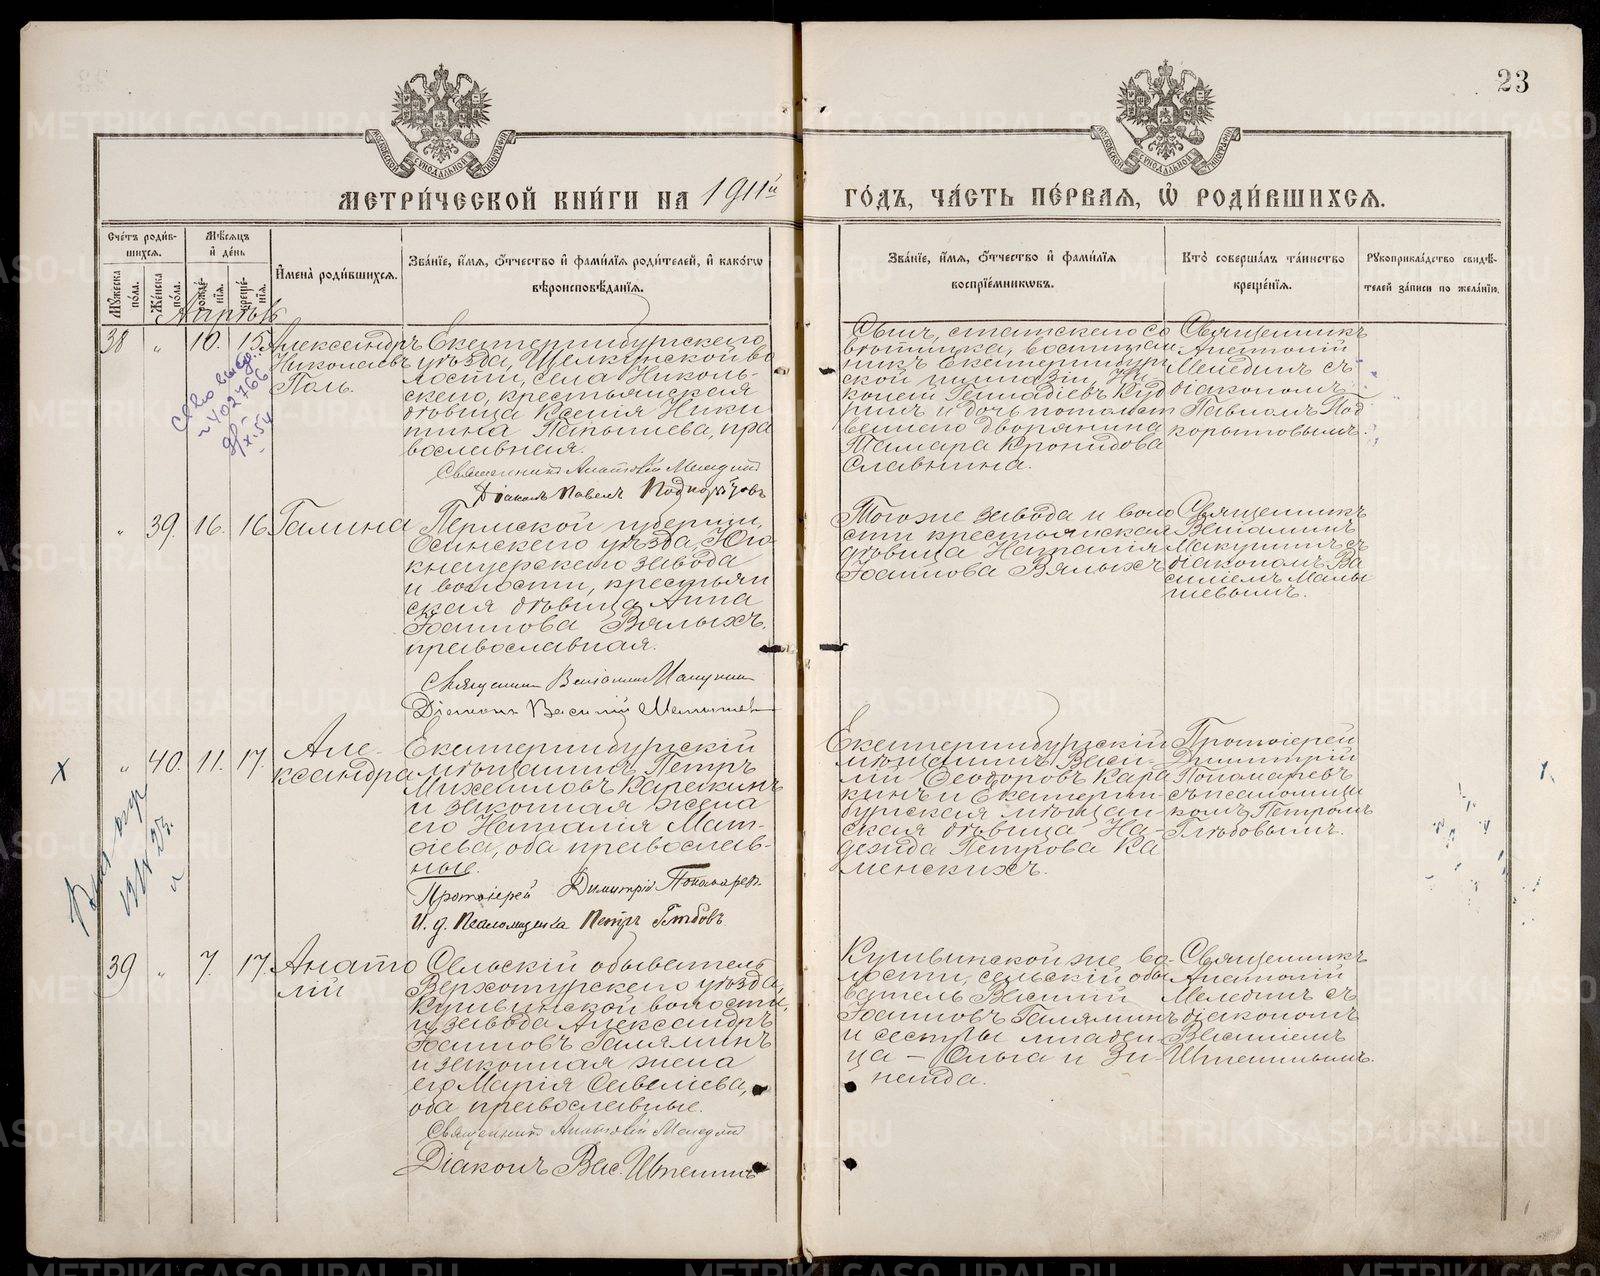 23
МЕТРИ́ЧЕСКОЙ КНИ́ГИ НА 1911й ГО́ДЪ, ЧА́СТЬ ПЕ́РВАЯ, Ѡ҆ РОДИ́ВШИХСЯ.
Сче́тъ роди́в-
шихся.
Мѣ́сяцъ
и҆ де́нь
Мꙋ́жеска
по́ла.
Же́нска
по́ла.
рожде́-
нїя.
креще́-
нїя.
И҆мена̀ роди́вшихся.
Зва́нїе, и҆́мя, ѻ҆́тчество и҆ фамѝлїя роди́телей, и҆ како́гѡ
вѣроисповѣ́данїя.
Зва́нїе, и҆́мя, ѻ҆́тчество и҆ фами́лїя
воспрїе́мникѡвъ.
Кто̀ соверша́лъ та́инство
креще́нїя.
Рꙋкоприкла́дство свидѣ́-
телей за́писи по жела́нїю.
Апрѣль
38 " 10. 15.
Александръ
Николаевъ
Поль.
Екатеринбургскаго
уѣзда, Щелкунской во
лости, села Николь-
скаго, крестьянская
дѣвица Ксенія Ники
тина Папышева, пра
вославная.
Священникъ Анатолій Мелединъ
Діаконъ Павелъ Подкорытовъ
Сынъ статскаго со
вѣтника, воспитан
никъ Екатеринбург
ской гимназіи, Ни
колай Геннадіевъ Куд
ринъ и дочь потомст
веннаго дворянина
Тамара Кронидова
Славнина.
Священникъ
Анатолій
Мелединъ съ
діакономъ
Павломъ Под
корытовымъ.
Св-во выд.
№ 402766
" 39. 16. 16.
Галина
Пермской губерніи,
Осинскаго уѣзда, Юго
кнауфскаго завода
и волости, крестьян
ская дѣвица Анна
Іоаннова Вялыхъ,
православная.
Священникъ Веніаминъ Макушинъ
Діаконъ Василій Малышевъ
Тогоже завода и воло
сти крестьянская
дѣвица Наталія
Іоаннова Вялыхъ
Священникъ
Веніаминъ
Макушинъ съ
діакономъ Ва
силіемъ Малы
шевымъ.
х " 40. 11. 17.
Але-
ксандра
Екатеринбургскій
мѣщанинъ Петръ
Михаиловъ Каракинъ
и законная жена
его Наталія Мат-
ѳіева, оба православ-
ные.
Протоіерей Димитрій Пономаревъ
И. д. Псаломщика Петръ Глѣбовъ
Екатеринбургскій
мѣщанинъ Васи-
лій Ѳеодоровъ Кара
кинъ и Екатерин-
бургская мѣщан-
ская дѣвица На-
дежда Петрова Ка
менскихъ.
Протоіерей
Димитрій
Пономаревъ
съ псаломщи
комъ Петромъ
Глѣбовымъ.
39 " 7. 17.
Анато
лій
Сельскій обыватель
Верхотурскаго уѣзда,
Кушвинской волости
и завода Александръ
Іоанновъ Галяминъ
и законная жена
его Марія Савеліева,
оба православные.
Священникъ Анатолій Меледин
Діаконъ Вас. Ивпешинъ
Кушвинской же во-
лости, сельскій обы
ватель Василій
Іоанновъ Галяминъ
и сестры младен-
ца – Ольга и Зи-
наида.
Священникъ
Анатолій
Мелединъ съ
діакономъ
Василіемъ